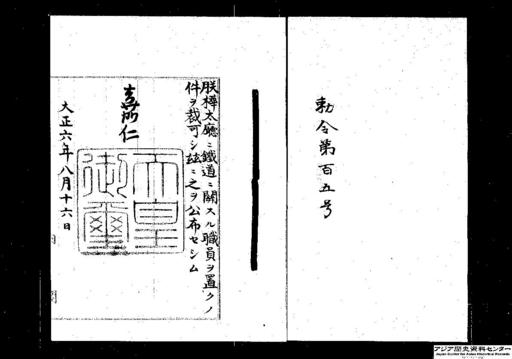 勅令第百五号
朕樺太廳ニ鐵道ニ關スル職員ヲ置クノ
件ヲ裁可シ玆ニ之ヲ公布セシム
嘉仁
天皇
御璽
大正六年八月十六日
アジア歴史資料センター
Japan Center for Asian Historical Records